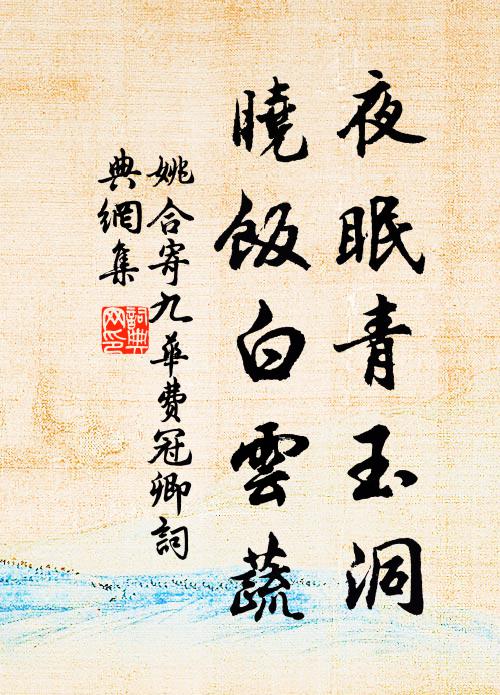 夜眠青玉洞
曉飯白雲蔬
姚合寄九華費冠卿詞
典網集
詞典
网印